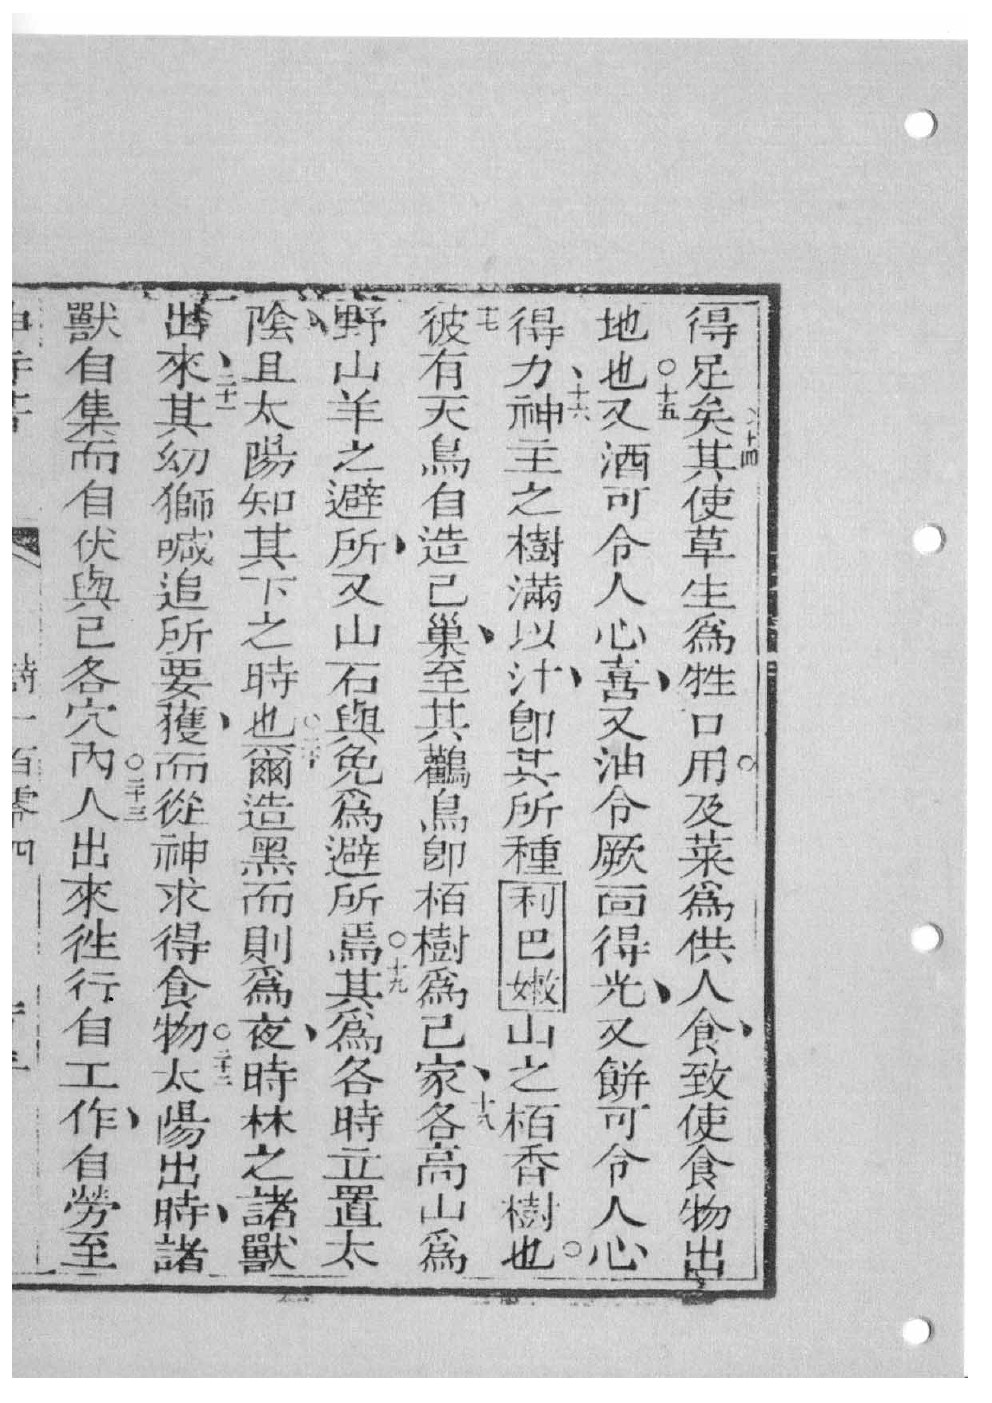 得足矣十四其使草生爲牲口用及菜爲供人食致使食物出
地也○十五又酒可令人心喜又油令厥面得光又餅可令人心
得力十六神主之樹滿以汁卽其所種利巴嫩山之栢香樹也
十七彼有天鳥自造己巢至其鸛鳥卽栢樹爲己家十八各高山爲
野山羊之避所又山石與兔爲避所焉○十九其爲各時立置太
陰且太陽知其下之時也○二十爾造黑而則爲夜時林之諸獸
出來二十一其幼獅喊追所要獲而從神求得食物○二十二太陽出時諸
獸自集而自伏與己各穴內○二十三人出來徃行自工作自勞至
詩一百零四